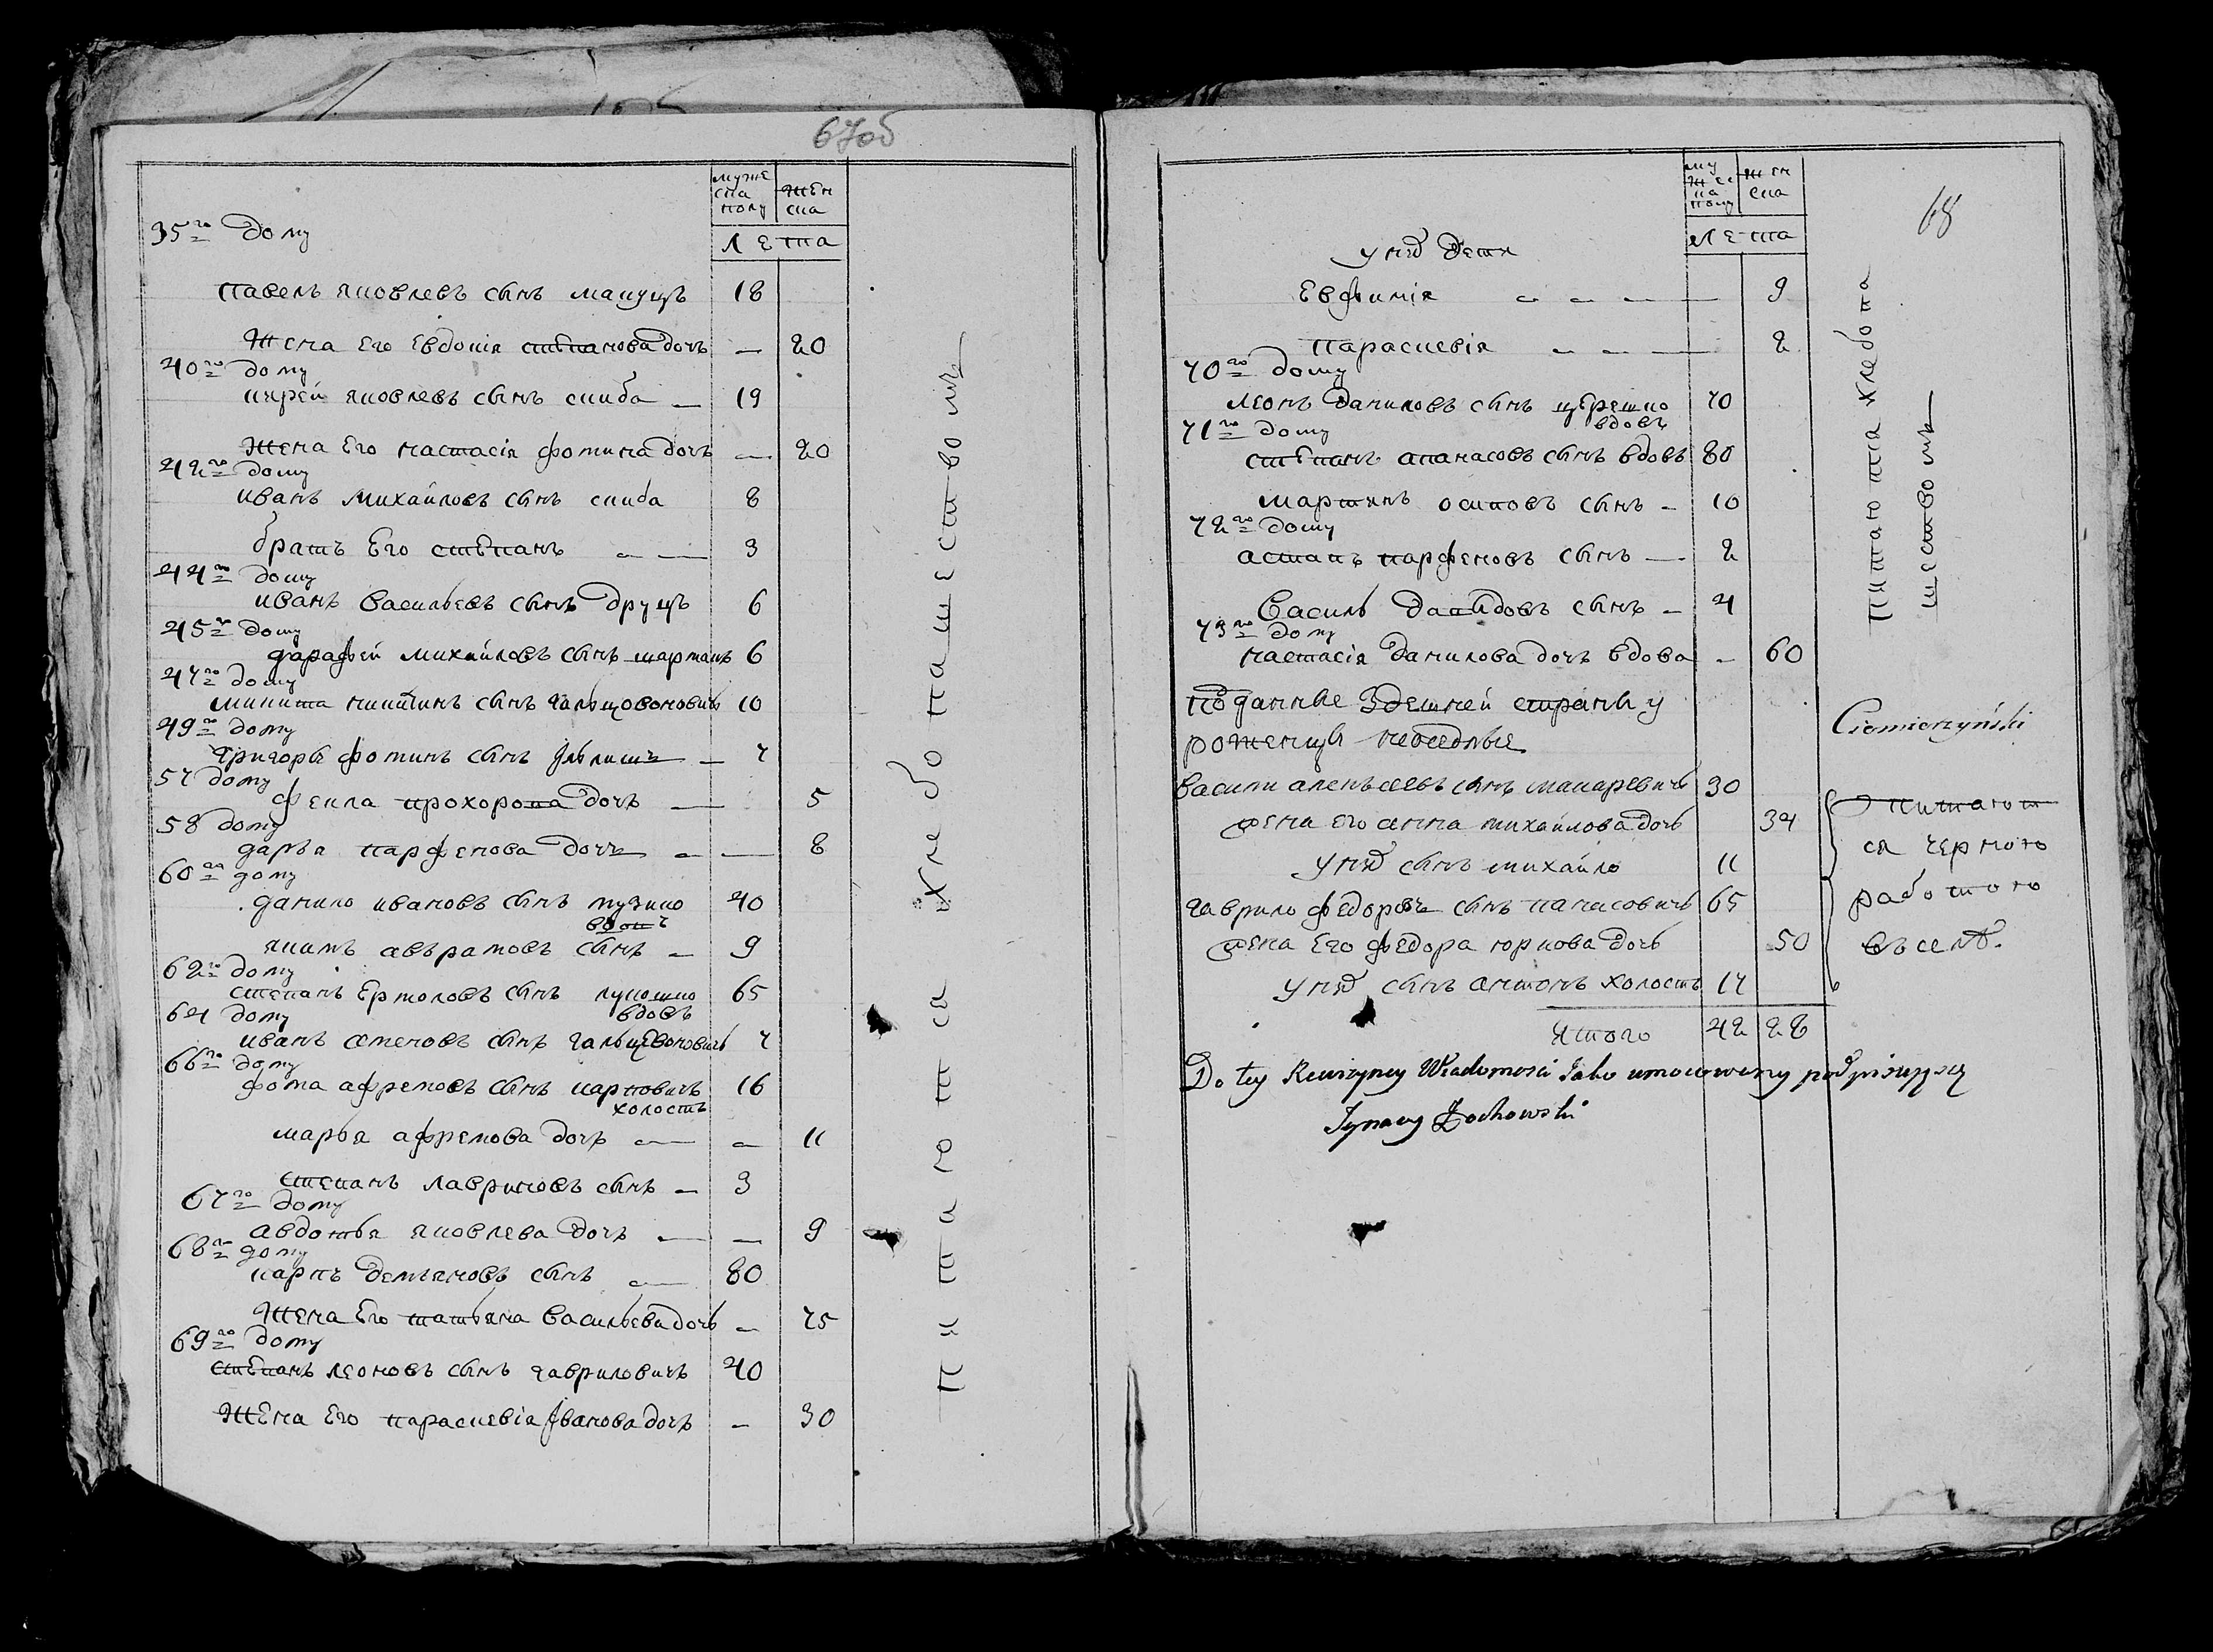 67об
муже
ска
полу
жен
ска
лета
35го дому
павелъ яковлевъ сынъ мацуцъ 18
жена его евдокiя степанова дочъ — 20
40го дому
кирей яковлевъ сынъ скиба — 19
жена его настасiя фотина дочъ — 20
42го дому
иванъ михайловъ сынъ скиба 8
братъ его степанъ — — 3
44го дому
иванъ васильевъ сынъ друцъ 6
45го дому
дарафей михайловъ сынъ 6
47го дому
микита никитинъ сынъ 10
49го дому
григоры фотинъ сынъ — 7
57 дому
фекла прохорова дочъ — 5
58 дому
даръя парфенова дочъ — — 8
60го дому
данило ивановъ сынъ пузико 40
вдовъ
якимъ авърамовъ сынъ — 9
62го дому
степанъ ермоловъ сынъ лукошко 65
вдовъ
64 дому
иванъ семеновъ сынъ гальцевоновичъ 7
66го дому
фома афремовъ сынъ карповичъ 16
холостъ
марья афремова дочъ — — 11
степанъ лавриновъ сынъ — 3
67го дому
авдотья яковлева дочъ — — 9
68го дому
карпъ демъяновъ сынъ — 80
жена его татьяна васильева дочъ — 75
69го дому
степанъ леоновъ сынъ гавриловичъ 40
жена его параскевiя Iванова дочъ — 30
питаются хлебопашествомъ
68
му
жес
ка
полу
жен
ска
лета
у нихъ дети
евфимiя — — — 9
параскевiя — — — 2
70го дому
леонъ даниловъ сынъ церешко 70
вдовъ
71го дому
степанъ апанасовъ сынъ вдовъ 80
мартинъ осиповъ сынъ — 10
72го дому
астапъ парфеновъ сынъ — 2
василь давидовъ сынъ — 4
73го дому
настасiя данилова дочъ вдова — 60
питаются хлебопа
шествомъ
подданные здешней страны у
роженцы
василии алексеевъ сынъ макаревичъ 30
жена его анна михайлова дочъ 34
у нихъ сынъ михайло 11
гаврило федоровъ сынъ панасовичъ 65
жена его федора юркова дочъ 50
у нихъ сынъ антонъ холостъ 17
питают
ся черною
работою
въ селѣ.
Итого 42 28
Do tey Rewizyney Wiadomości Jako umocowany podpisuję się
Ignacy Żochowski